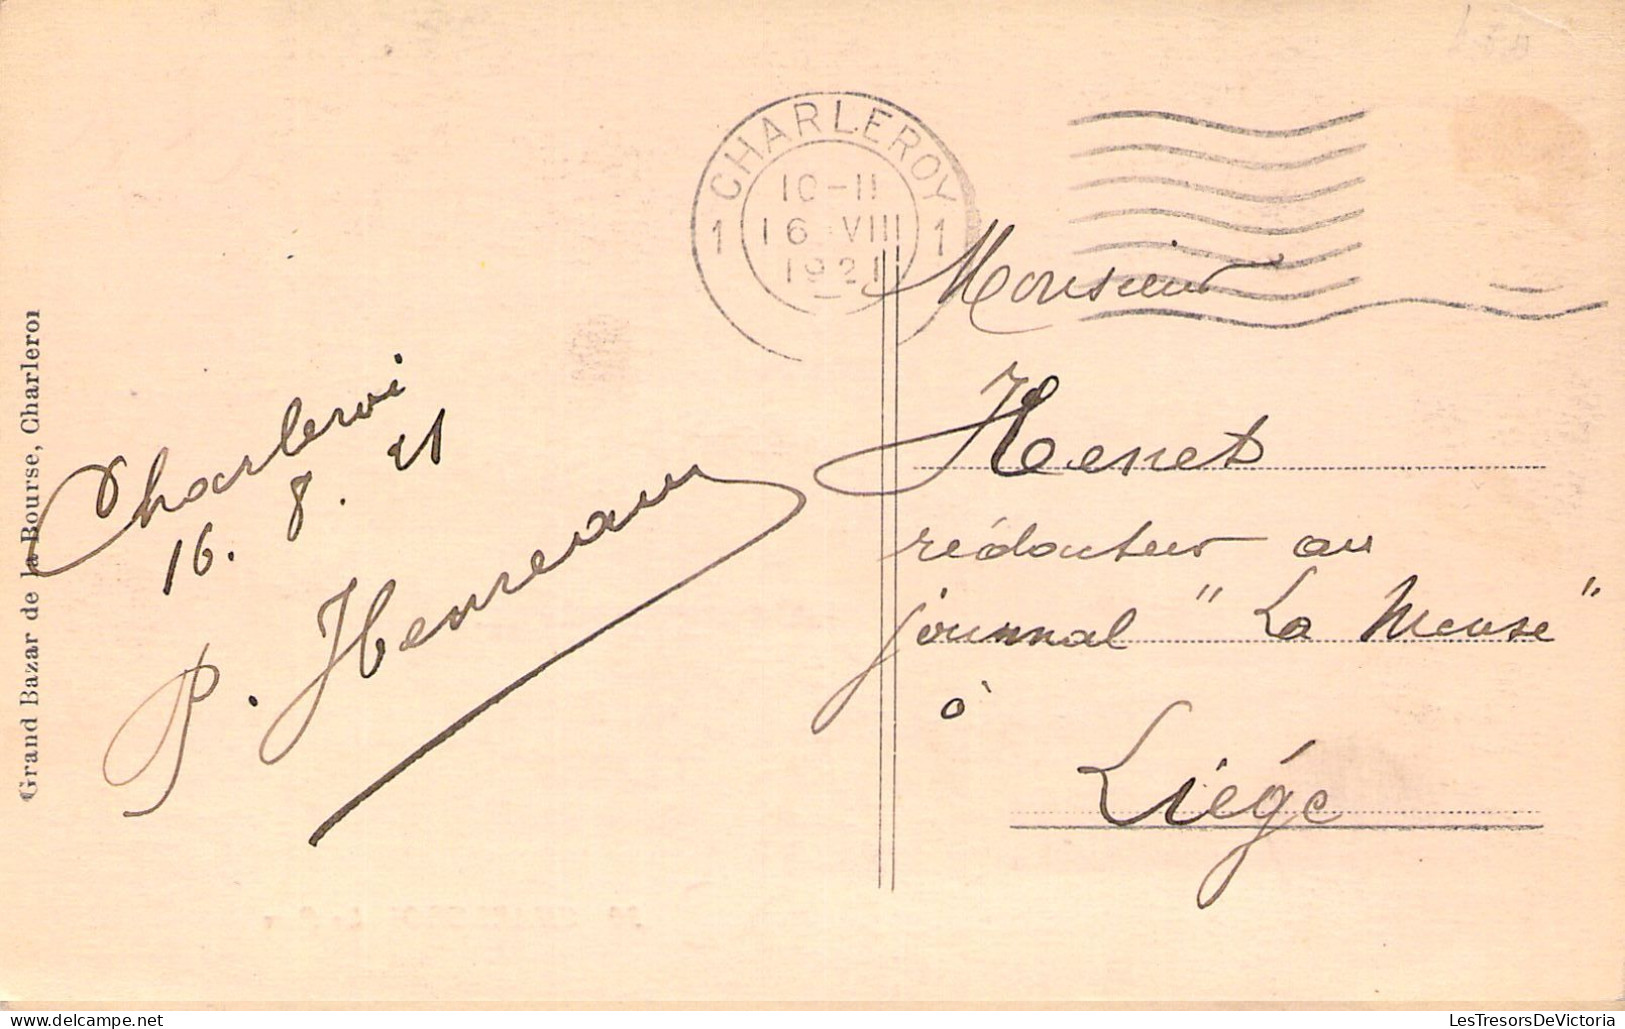 CHARLEROY
1 10-11 1
16 VIII
1921
Grand Bazar de la Bourse, Charleroi
Charleroi
16. 8. 21
P. Henreaux
Monsieur
Henet
rédacteur au
journal "La Meuse"
à
Liége
LesTresorsDeVictoria